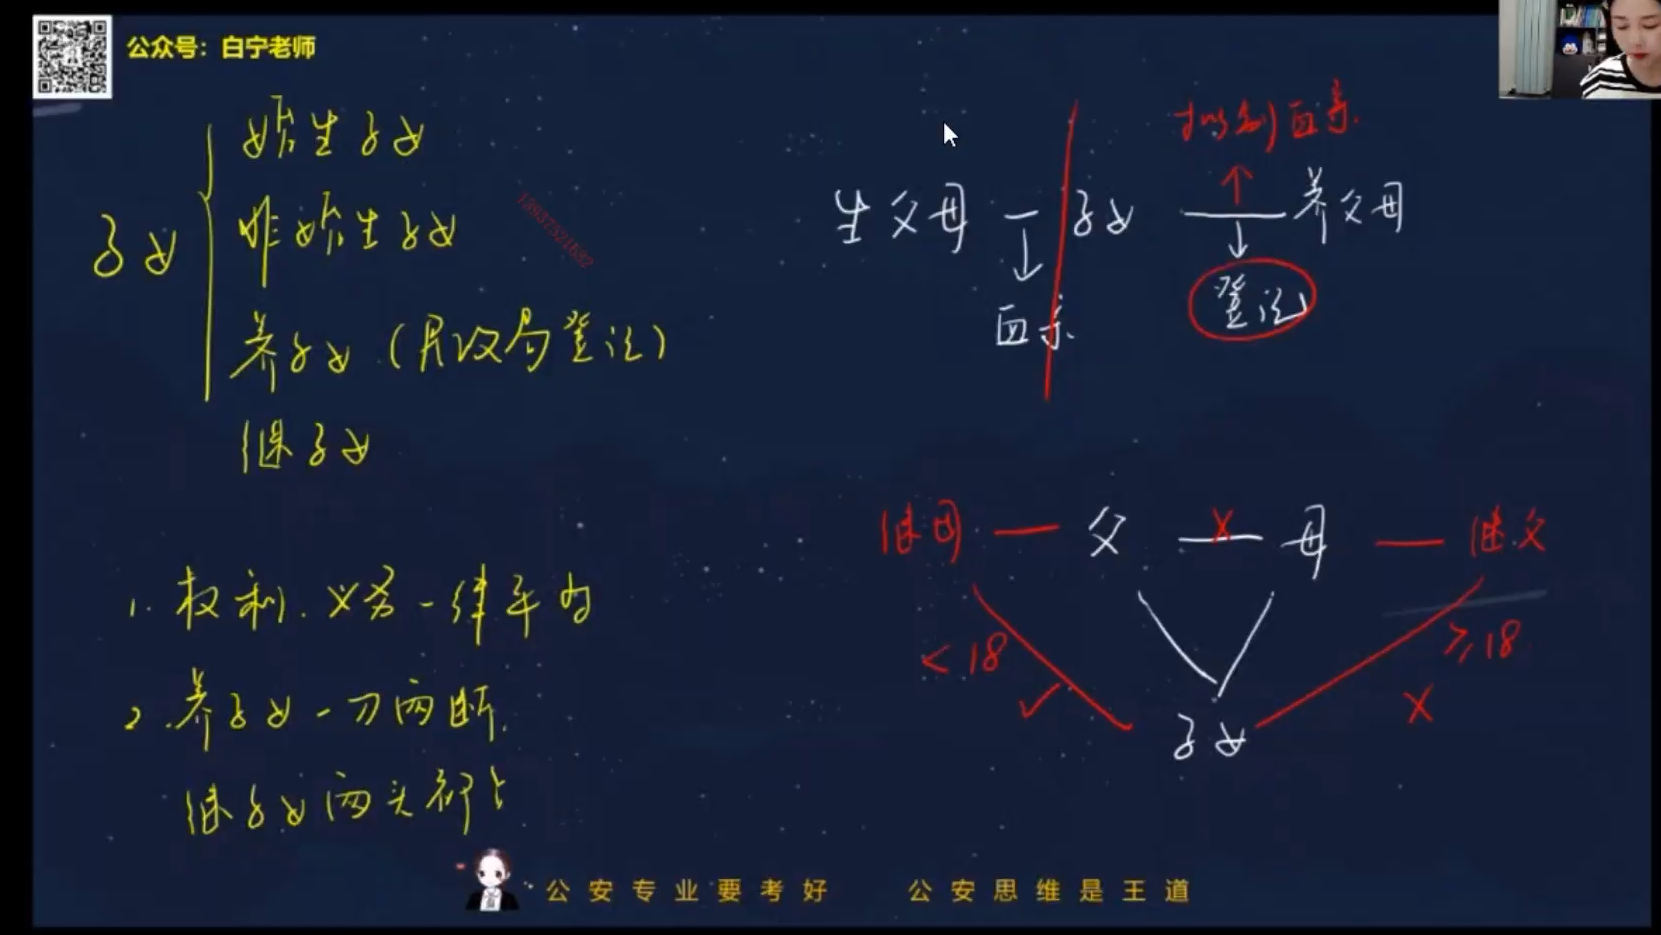 公众号：白宁老师
子女
婚生子女
非婚生子女
养子女（民政局登记）
继子女
13937521682
1. 权利、义务一律平等
2. 养子女一刀两断
继子女两头都占
拟制血亲
生父母 — 子女 — 养父母
血亲
登记
继母 — 父 X 母 — 继父
<18
≥18
✓
X
子女
公安专业要考好 公安思维是王道